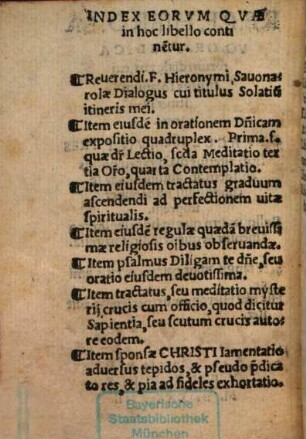 INDEX EORVM QVÆ
in hoc libello conti
nẽtur.
¶Reuerendi. F. Hieronymi, Sauona
rolæ Dialogus cui titulus Solatiũ
itineris mei.
¶Item eiusdẽ in orationem Dñicam
expositio quadruplex. Prima.s.
quæ dr̃ Lectio, scda Meditatio ter
tia Oro, quarta Contemplatio.
¶Item eiusdem tractatus graduum
ascendendi ad perfectionem uitæ
spiritualis.
¶Item eiusdẽ regulæ quædã breuissi
mæ religiosis oibus obseruandæ.
¶Item psalmus Diligam te dñe, seu
oratio eiusdem deuotissima.
¶Item tractatus, seu meditatio myste
rij crucis cum officio, quod dicitur
Sapientia, seu scutum crucis auto
re eodem.
¶Item sponsæ CHRISTI lamentatio
aduersus tepidos, & pseudo p̃dica
tores, & pia ad fideles exhortatio.
Bayerische
Staatsbibliothek
München